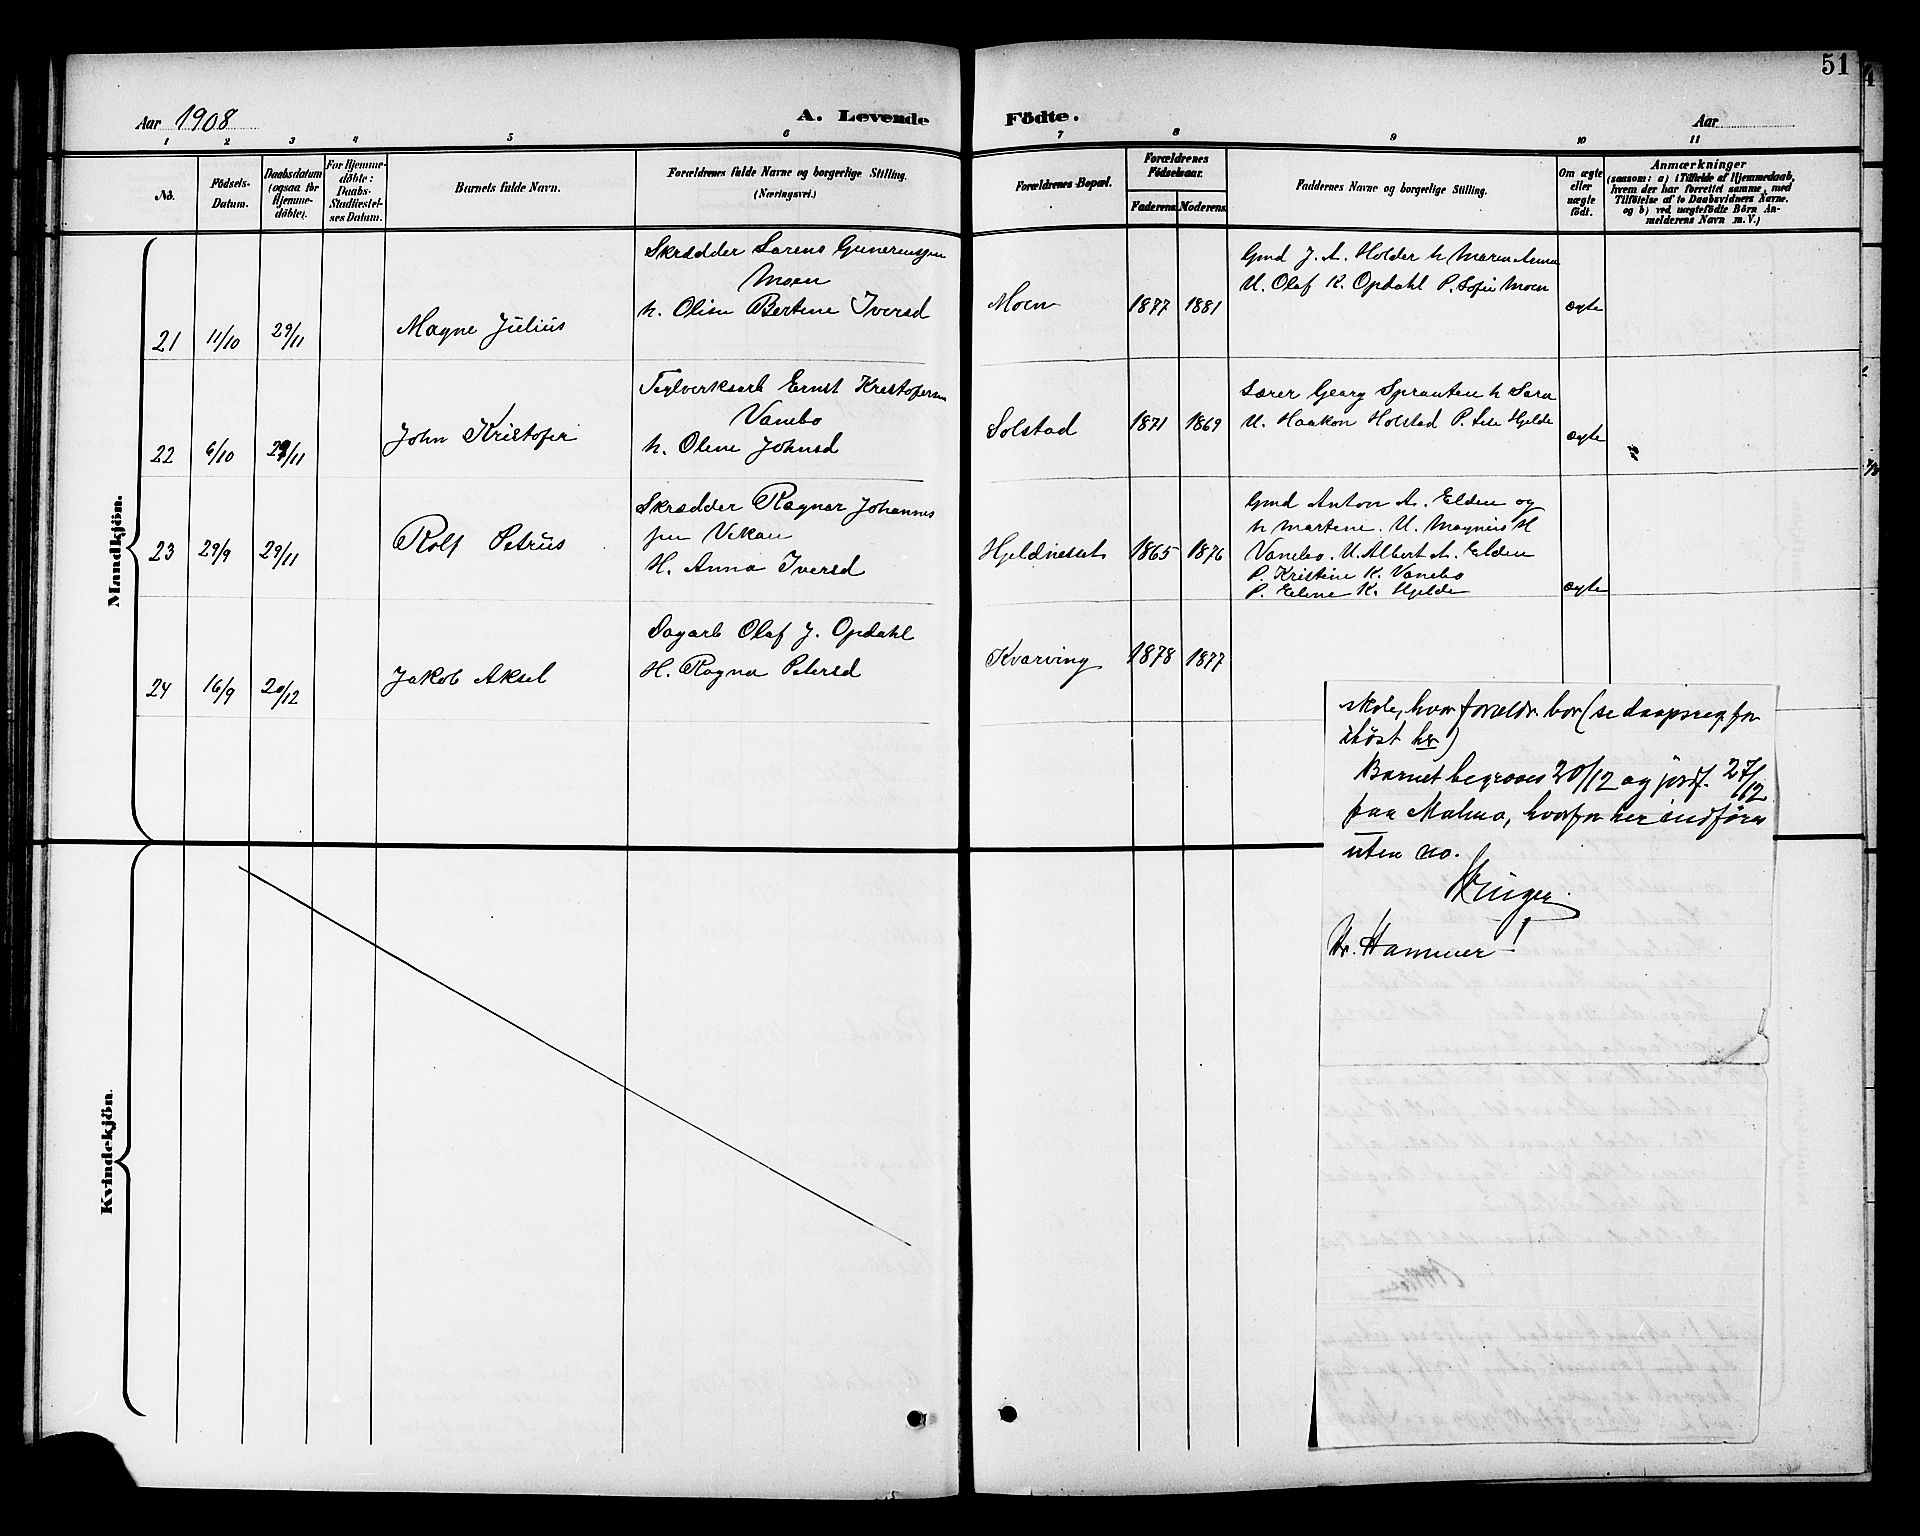 51
Aar 1908
A. Levende
Födte.
Aar
1 2 3 4 5 6 7 8 9 10 11
No.
Födsels-Datum.
Daabsdatum (ogsaa for Hjemmedöbte).
For Hjemmedöbte: Daabs-Stadfæstelses Datum.
Barnets fulde Navn.
Forældrenes fulde Navne og borgerlige Stilling.
(Næringsvei.)
Forældrenes Bopæl.
Forældrenes Födselsaar.
Faderens Moderens
Faddernes Navne og borgerlige Stilling.
Om ægte eller uægte födt.
Anmærkninger
(saasom: a) i Tilfælde af Hjemmedaab,
hvem der har forrettet samme, med
Tilföielse af to Daabsvidners Navne.
og b) ved uægtefödte Börn An-
melderens Navn m. V.)
Mandkjön.
21 11/10 29/11 Magne Julius
Skrædder Lorens
Moen
h. Oline Bertine Iversd
Moen 1877 1881
Gmd J. A. Holder h Maren Anna
U. Olaf K. Opdahl P. Sofie Moen
ægte
22 6/10 29/11 John Kristofer
Teglverksarb Ernst Kristofersen
Vanebo
h. Oline Johnsd
Solstad 1871 1869
Lærer Georg h Sara
U. Haakon Holstad P. Hjelde
ægte
23 29/9 29/11 Rolf Petrus
Skrædder Ragnar Johannes
sen Vekan
H. Anna Iversd
Hjeldnesset 1865 1876
Gmd Anton A. Elden og
h Martine. U. Magnus H
Vanebo. U. Albert A. Elden
P. Kristine K. Vanebo
P. Eline K. Hjelde
ægte
24 16/9 20/12 Jakob Aksel
Sagarb Olaf J. Opdahl
H. Ragna Petersd
Kvarving 1878 1877
skole, hvor forældr. bor (se daapsreg for
ihöst her)
Barnet begraves 20/12 og jordf. 27/12
paa Malmo, hvorfor her indföres
uten no.
Hr. Hammer!
Kvindekjön.